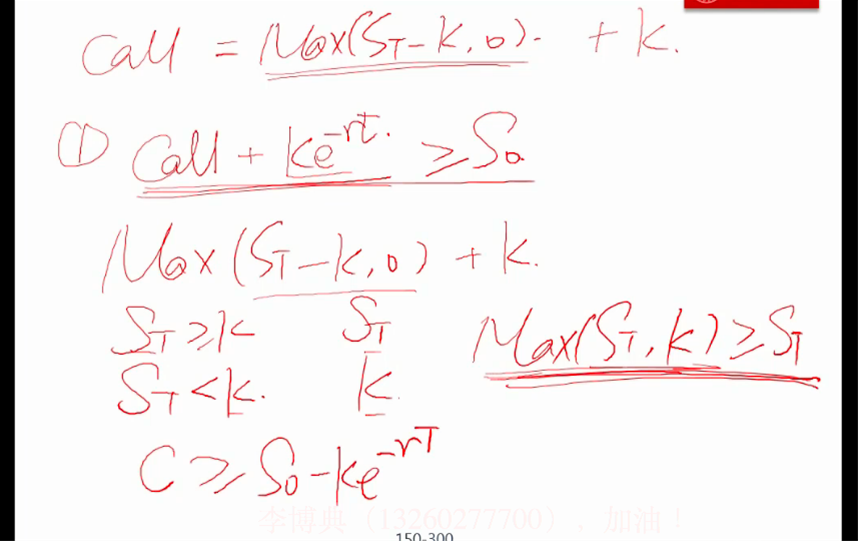 Call = Max(S_T-K,0). + K.
① Call + Ke^{-rT}. ≥ S_0
Max(S_T-K,0) + K.
S_T ≥ K    S_T
Max(S_T,K) ≥ S_T
S_T < K.    K
C ≥ S_0 - Ke^{-rT}
李博典（13260277700），加油！
150-300